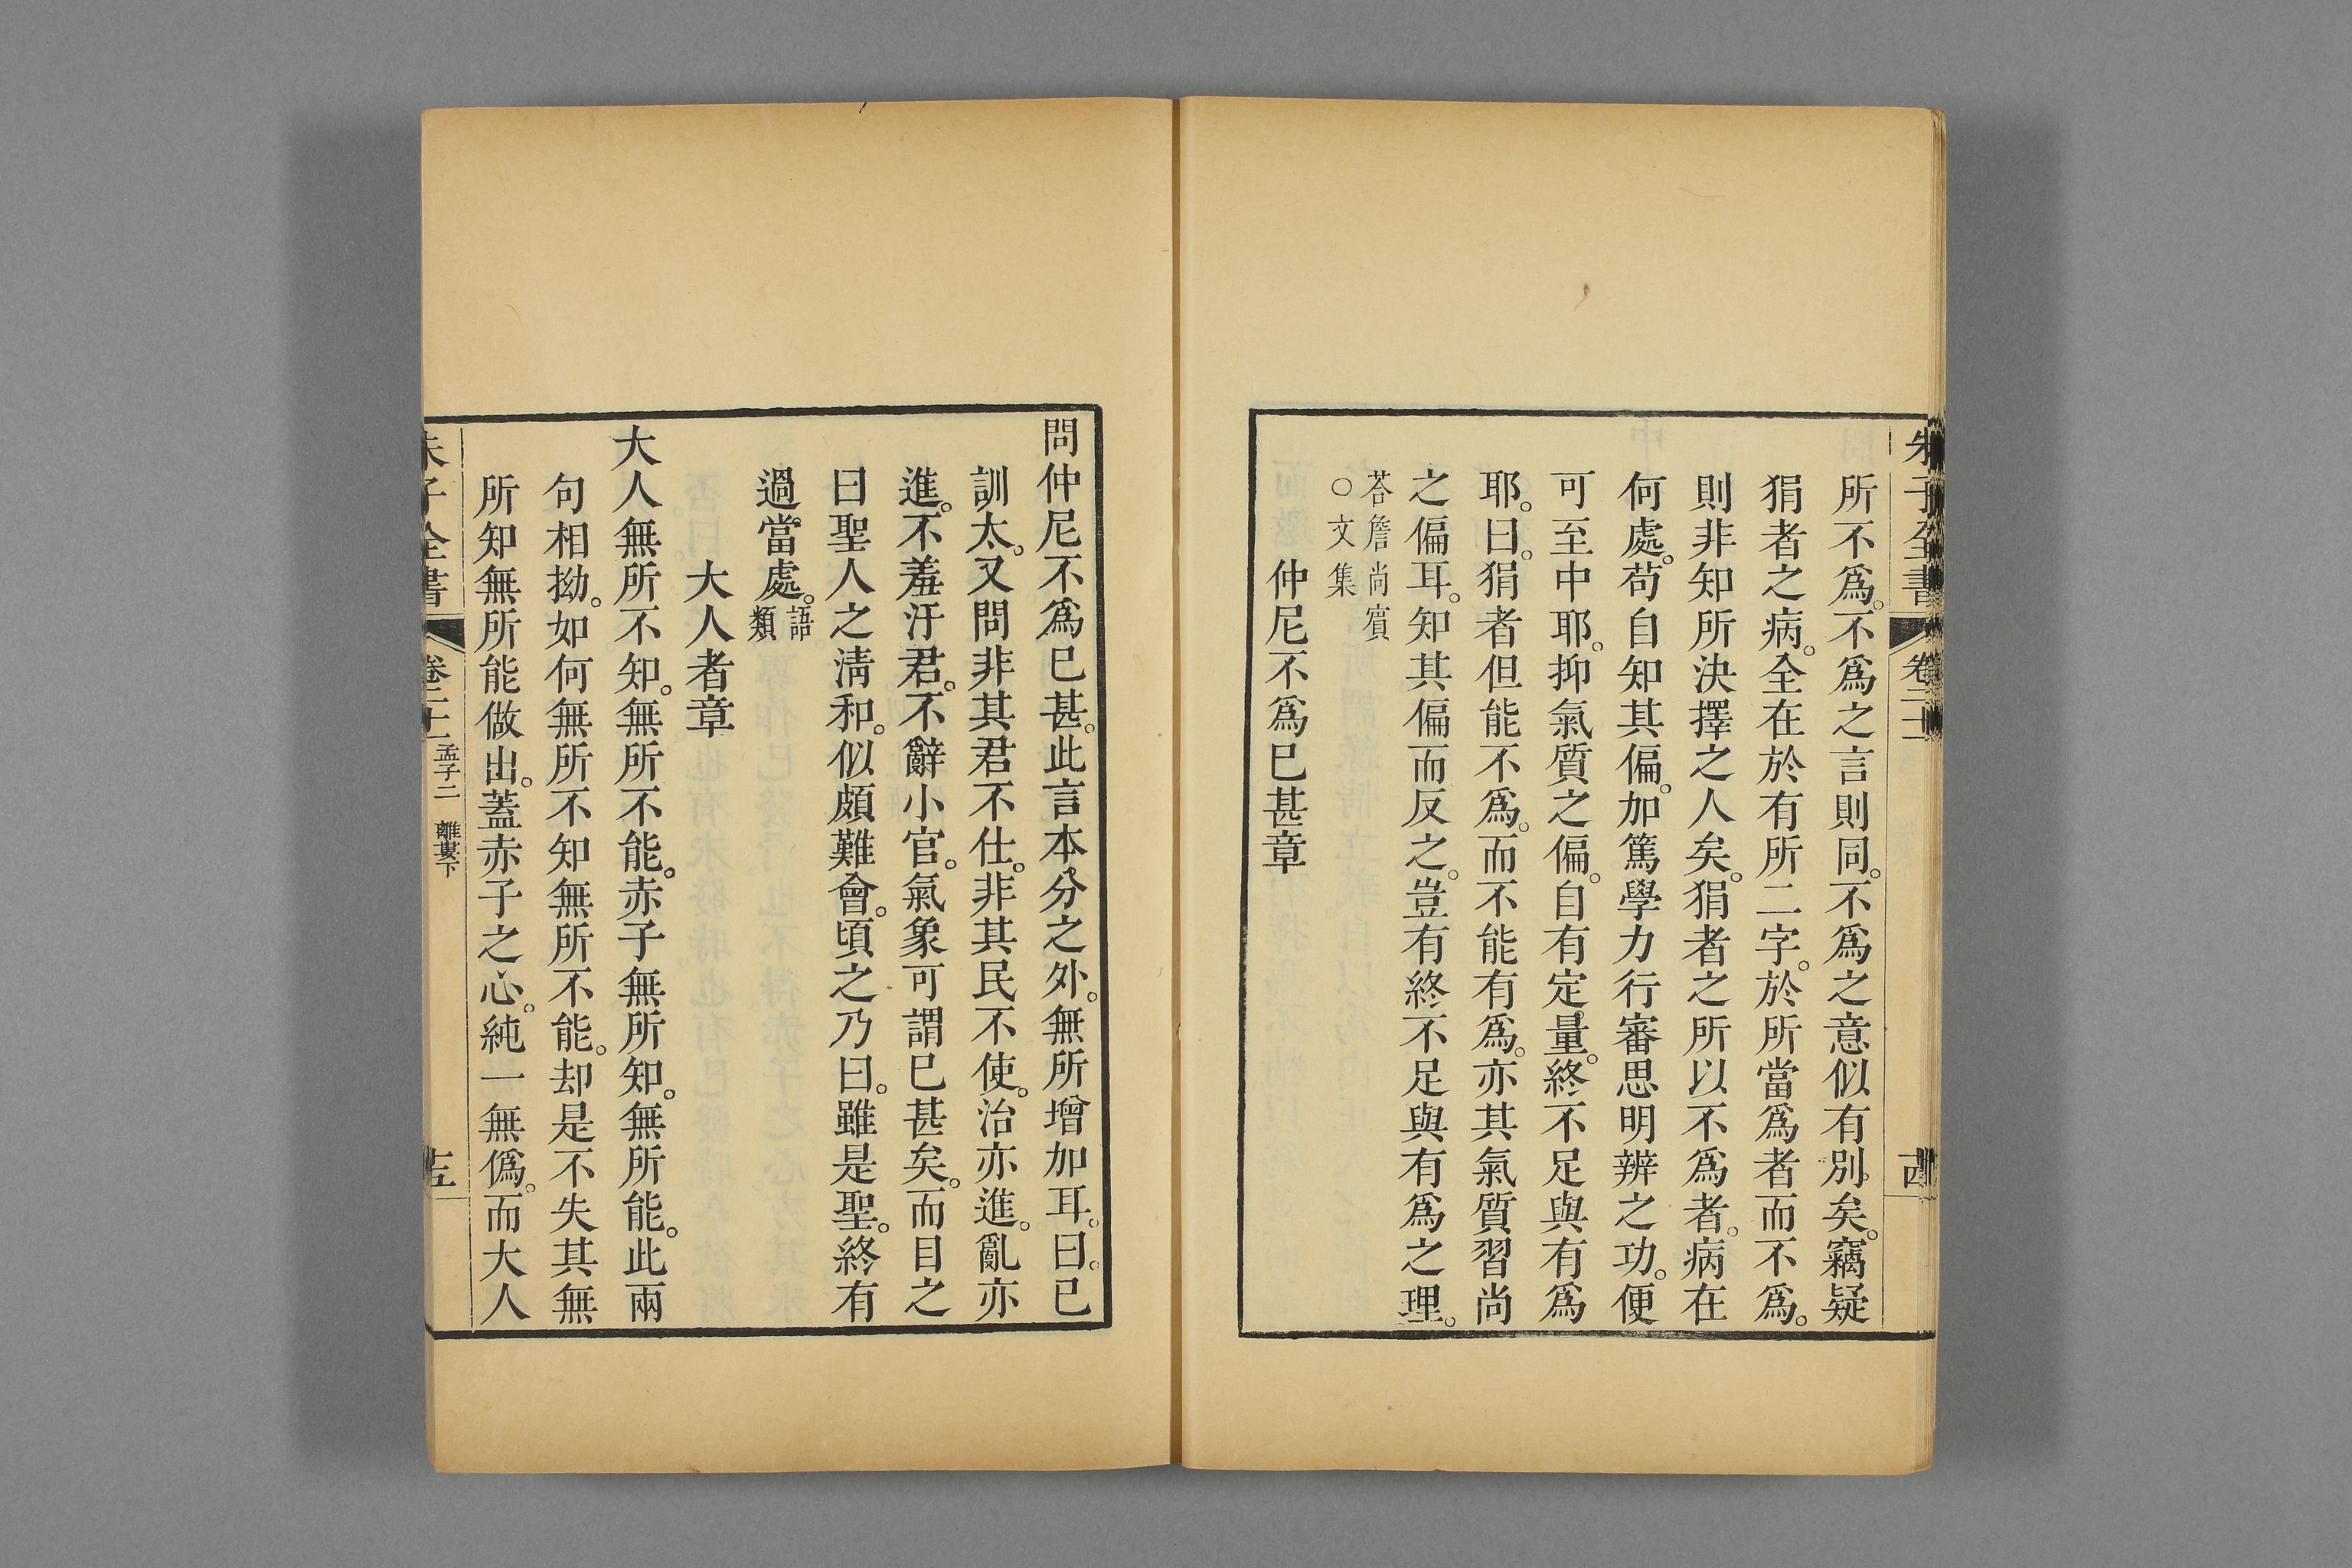 朱子全書 卷二十二 十四
所不爲。不爲之言則同。不爲之意似有別矣。竊疑
狷者之病。全在於有所二字。於所當爲者而不爲。
則非知所決擇之人矣。狷者之所以不爲者。病在
何處。苟自知其偏。加篤學力行審思明辨之功。便
可至中耶。抑氣質之偏。自有定量。終不足與有爲
耶。曰。狷者但能不爲。而不能有爲。亦其氣質習尚
之偏耳。知其偏而反之。豈有終不足與有爲之理。
荅詹尚賓
○文集
仲尼不爲已甚章
問仲尼不爲已甚。此言本分之外。無所增加耳。曰。已
訓太。又問非其君不仕。非其民不使。治亦進。亂亦
進。不羞汙君。不辭小官。氣象可謂已甚矣。而目之
曰聖人之淸和。似頗難會。頃之乃曰。雖是聖。終有
過當處。語
類
大人者章
大人無所不知。無所不能。赤子無所知。無所能。此兩
句相拗。如何無所不知無所不能。却是不失其無
所知無所能做出。蓋赤子之心。純一無僞。而大人
朱子全書 卷二十二 孟子二 離婁下 十五